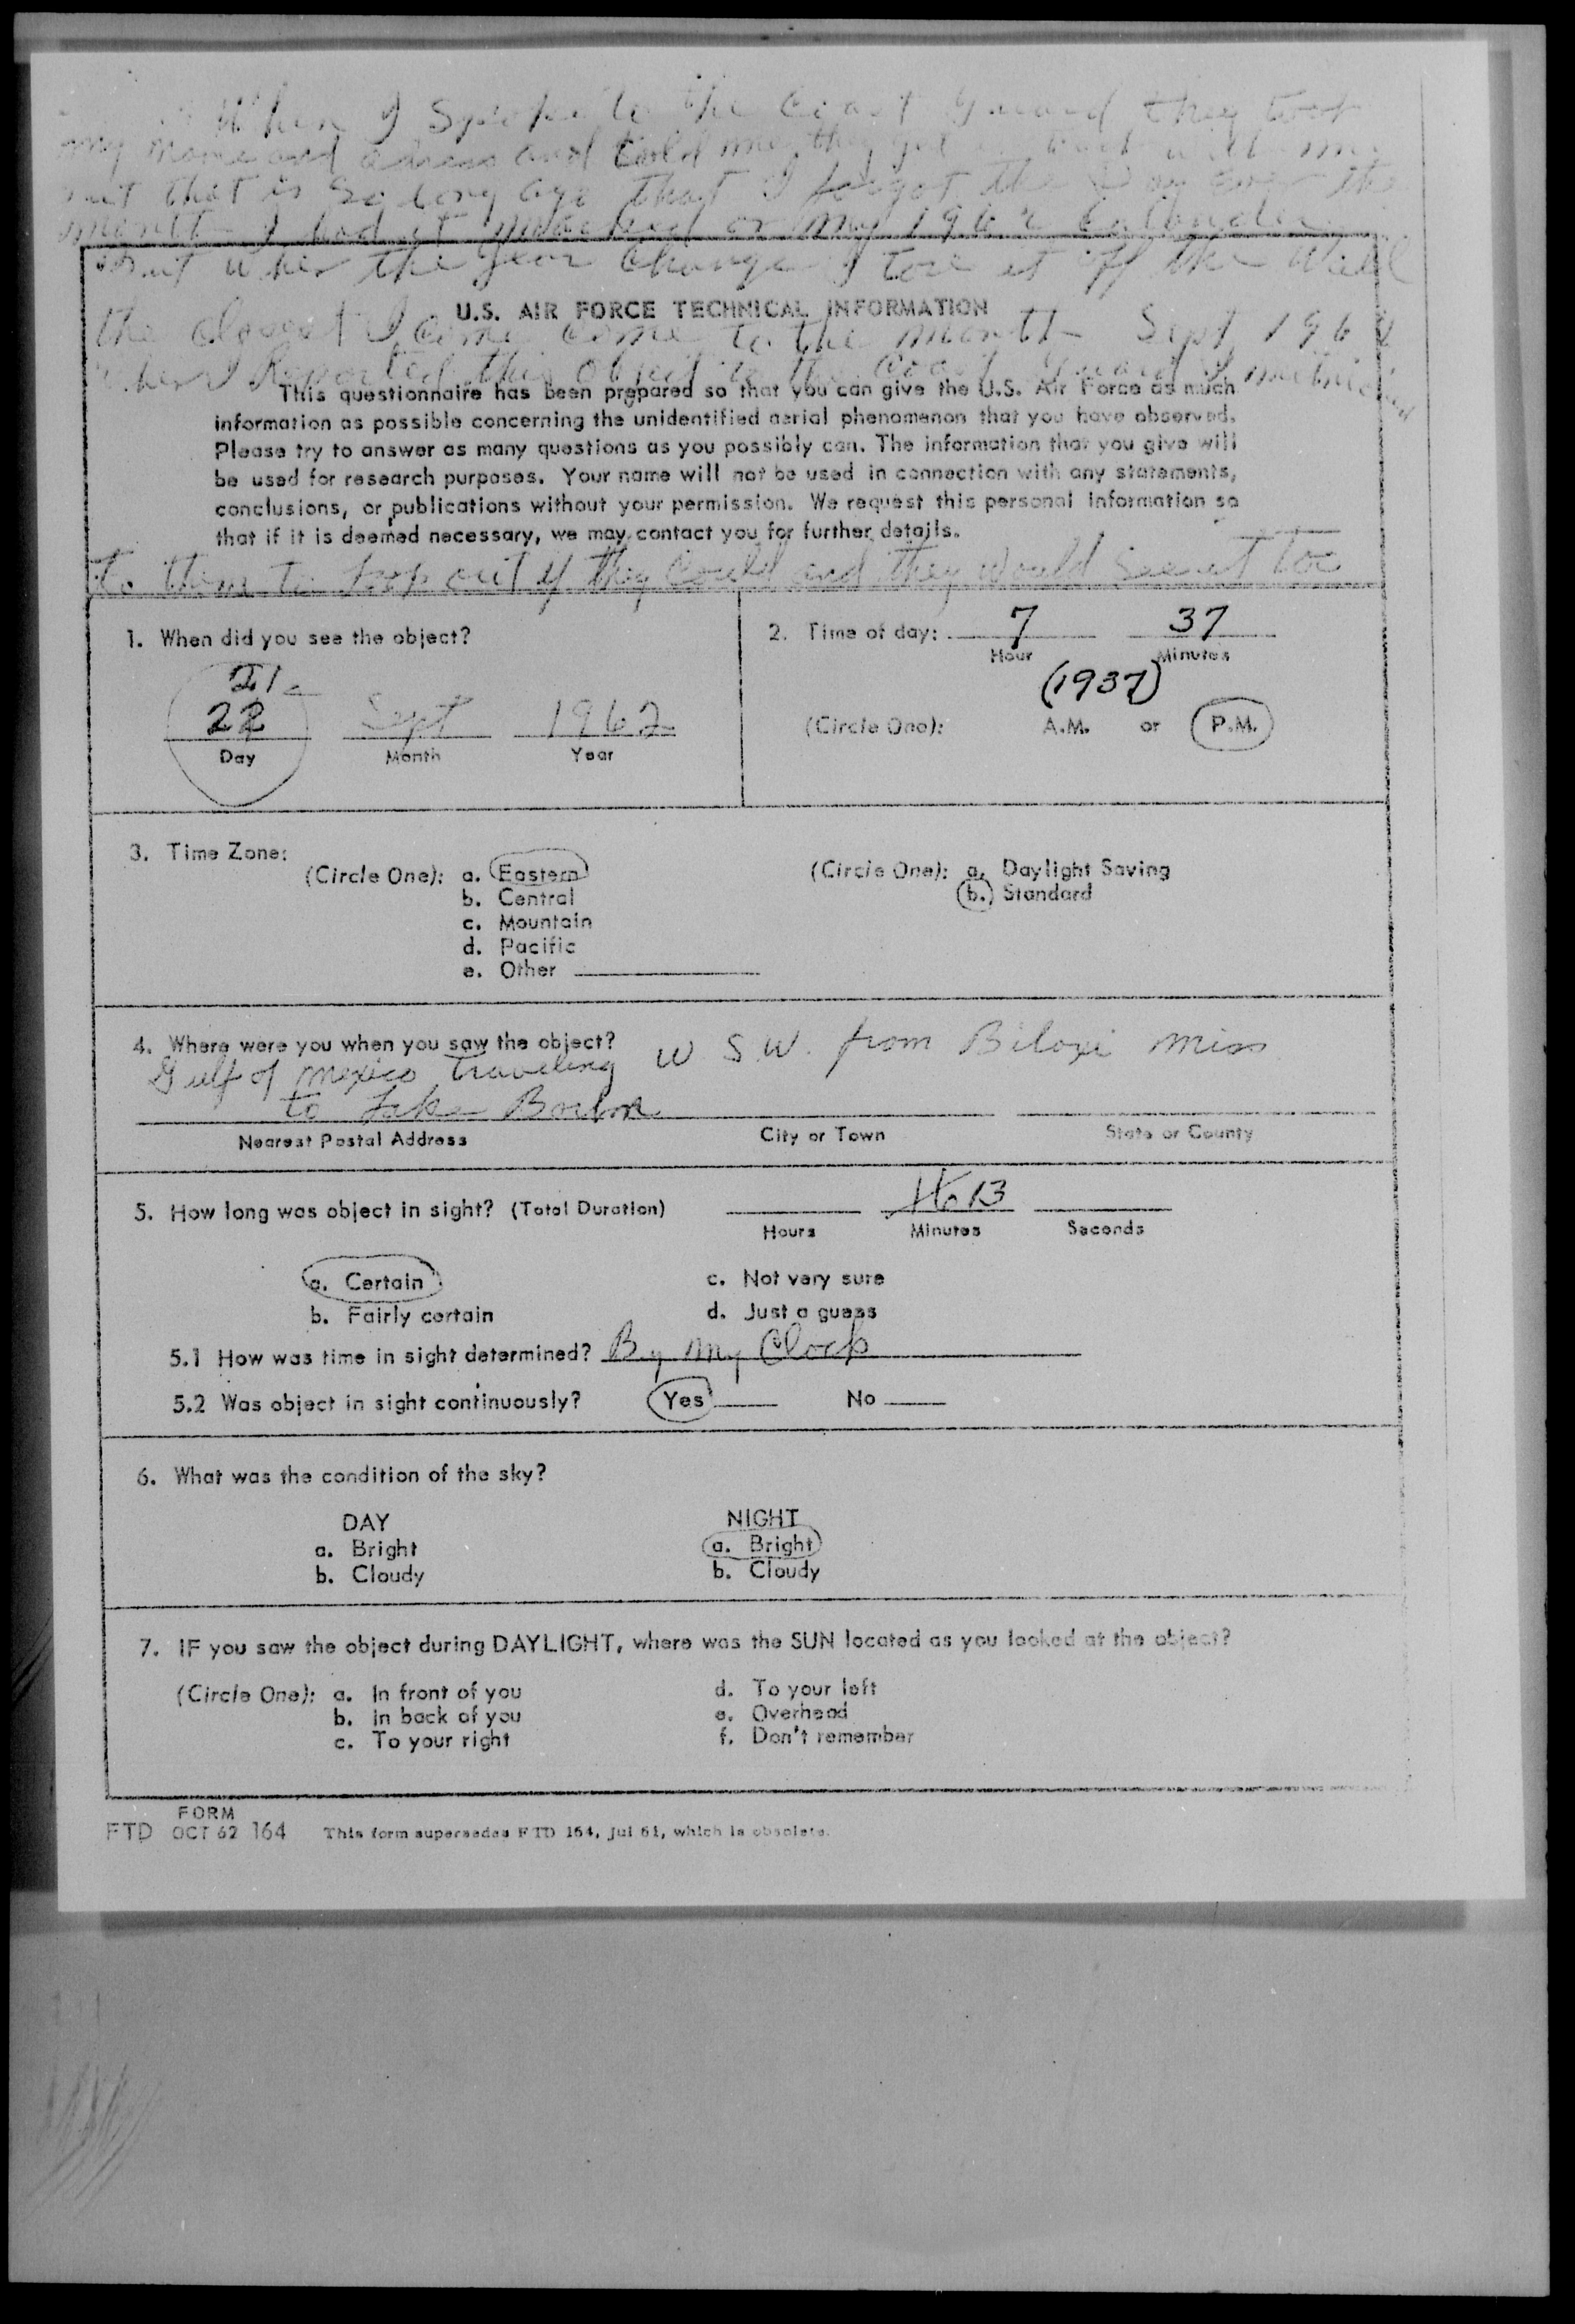 When I Spoke to the Coast Guard they took
my name and adress and told me they get in with me
but that is so long ago that I forgot the Day even the
month I had it marked on my 1962 Callender
But when the year change I tore it off the Wall
U.S. AIR FORCE TECHNICAL INFORMATION
the closest I can come to the month Sept 1962
when I Reported this object to the Coast Guard I mentioned
This questionnaire has been prepared so that you can give the U.S. Air Force as much
information as possible concerning the unidentified aerial phenomenon that you have observed.
Please try to answer as many questions as you possibly can. The information that you give will
be used for research purposes. Your name will not be used in connection with any statements,
conclusions, or publications without your permission. We request this personal information so
that if it is deemed necessary, we may contact you for further details.
to them to look out if they could and they would see it too
1. When did you see the object?
21
22 Sept 1962
Day Month Year
2. Time of day: 7 37
Hour Minutes
(1937)
(Circle One): A.M. or P.M.
3. Time Zone:
(Circle One): a. Eastern
b. Central
c. Mountain
d. Pacific
e. Other
(Circle One): a. Daylight Saving
b. Standard
4. Where were you when you saw the object?
Gulf of mexico traveling W. S. W. from Biloxi Miss
to Lake Borne
Nearest Postal Address City or Town State or County
5. How long was object in sight? (Total Duration) 13
Hours Minutes Seconds
a. Certain c. Not very sure
b. Fairly certain d. Just a guess
5.1 How was time in sight determined? By my Clock
5.2 Was object in sight continuously? Yes No
6. What was the condition of the sky?
DAY NIGHT
a. Bright a. Bright
b. Cloudy b. Cloudy
7. IF you saw the object during DAYLIGHT, where was the SUN located as you looked at the object?
(Circle One): a. In front of you d. To your left
b. In back of you e. Overhead
c. To your right f. Don't remember
FORM
FTD OCT 62 164 This form supersedes FTD 164, Jul 61, which is obsolete.